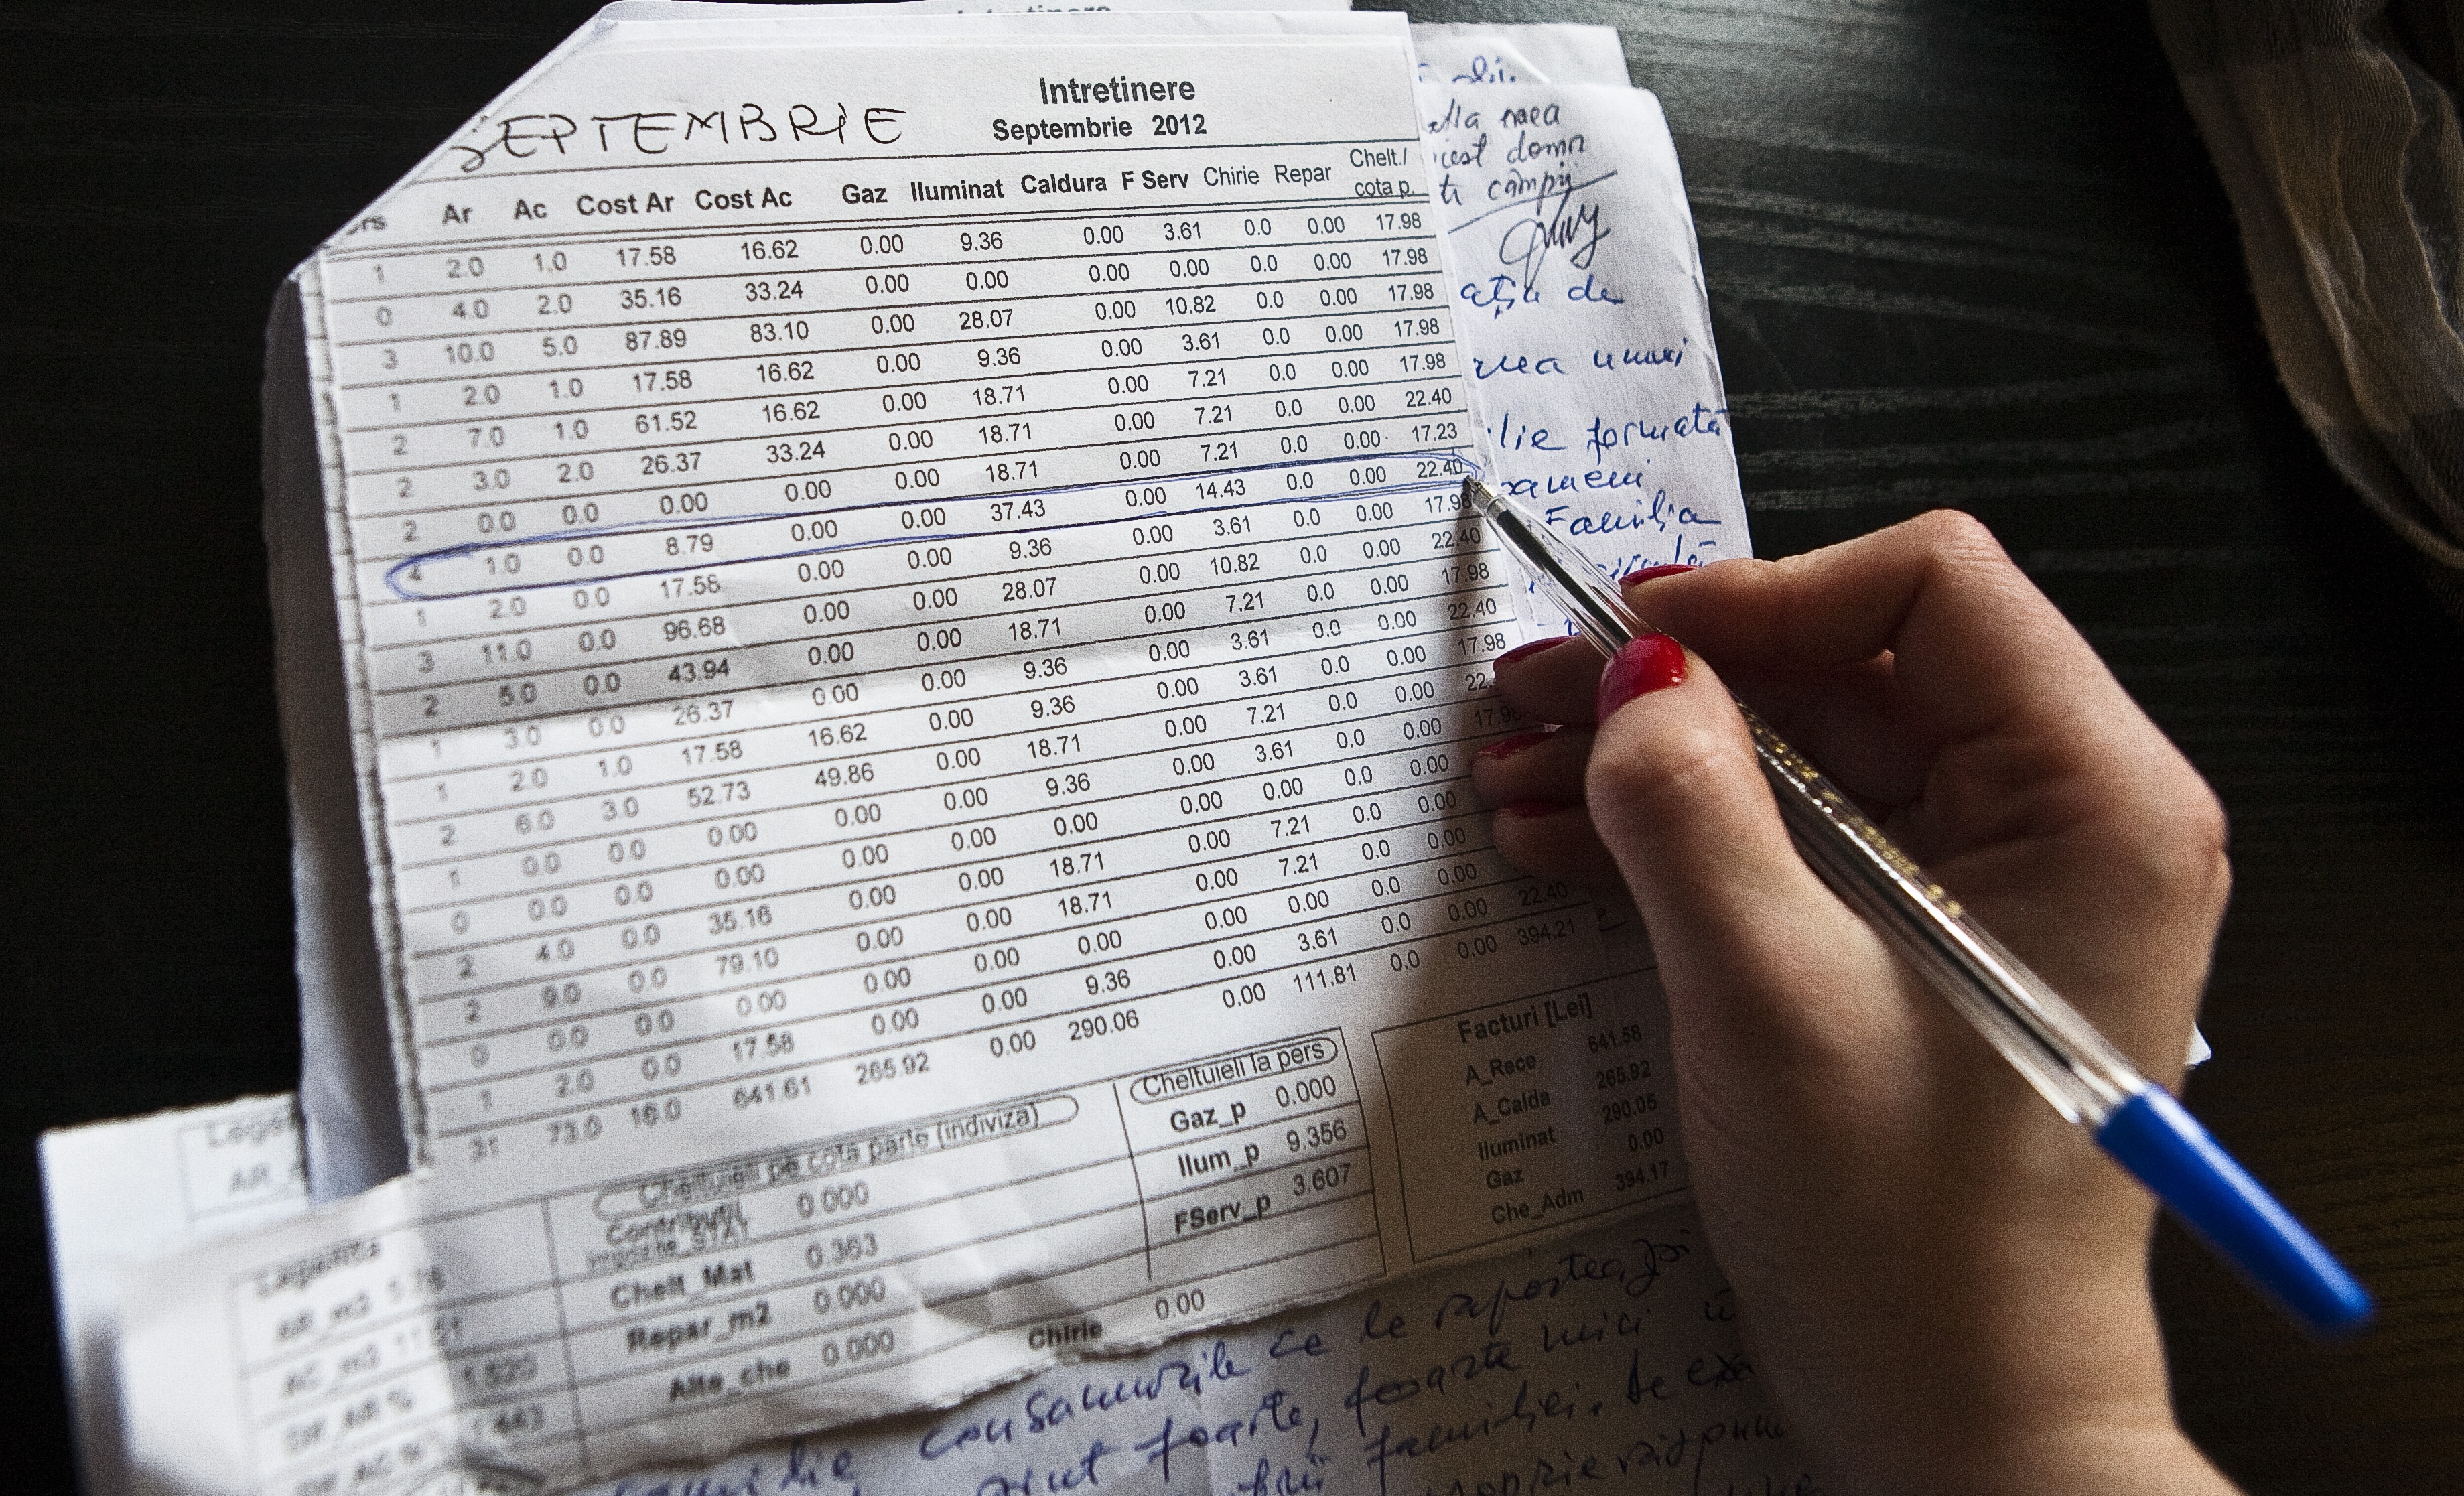 Intretinere
SEPTEMBRIE
Intretinere
Septembrie 2012
Ar Ac Cost Ar Cost Ac Gaz Iluminat Caldura F Serv Chirie Repar Chelt./ cota p.
1 2.0 1.0 17.58 16.62 0.00 9.36 0.00 3.61 0.0 0.00 17.98
0 4.0 2.0 35.16 33.24 0.00 0.00 0.00 0.00 0.0 0.00 17.98
3 10.0 5.0 87.89 83.10 0.00 28.07 0.00 10.82 0.0 0.00 17.98
1 2.0 1.0 17.58 16.62 0.00 9.36 0.00 3.61 0.0 0.00 17.98
2 7.0 1.0 61.52 16.62 0.00 18.71 0.00 7.21 0.0 0.00 17.98
2 3.0 2.0 26.37 33.24 0.00 18.71 0.00 7.21 0.0 0.00 22.40
2 0.0 0.0 0.00 0.00 0.00 18.71 0.00 7.21 0.0 0.00 17.23
4 1.0 0.0 8.79 0.00 0.00 37.43 0.00 14.43 0.0 0.00 22.40
1 2.0 0.0 17.58 0.00 0.00 9.36 0.00 3.61 0.0 0.00 17.98
3 11.0 0.0 96.68 0.00 0.00 28.07 0.00 10.82 0.0 0.00 22.40
2 5.0 0.0 43.94 0.00 0.00 18.71 0.00 7.21 0.0 0.00 17.98
1 3.0 0.0 26.37 0.00 0.00 9.36 0.00 3.61 0.0 0.00 22.40
1 2.0 1.0 17.58 16.62 0.00 9.36 0.00 3.61 0.0 0.00 17.98
2 6.0 3.0 52.73 49.86 0.00 18.71 0.00 7.21 0.0 0.00
1 0.0 0.0 0.00 0.00 0.00 9.36 0.00 3.61 0.0 0.00 17.98
0 0.0 0.0 0.00 0.00 0.00 0.00 0.00 0.00 0.0 0.00
2 4.0 0.0 35.16 0.00 0.00 18.71 0.00 7.21 0.0 0.00
2 9.0 0.0 79.10 0.00 0.00 18.71 0.00 7.21 0.0 0.00
0 0.0 0.0 0.00 0.00 0.00 0.00 0.00 0.00 0.0 0.00
1 2.0 0.0 17.58 0.00 0.00 9.36 0.00 3.61 0.0 0.00 22.40
31 73.0 16.0 641.61 265.92 0.00 290.06 0.00 111.81 0.0 0.00 394.21
Cheltuieli pe cota parte (indiviza)
Contributii 0.000
Chelt_Mat 0.363
Repar_m2 0.000
Alte_che 0.000
Chirie 0.00
Cheltuieli la pers
Gaz_p 0.000
Ilum_p 9.356
FServ_p 3.607
Facturi [Lei]
A_Rece 641.58
A_Calda 265.92
Iluminat 290.05
Gaz 0.00
Che_Adm 394.17
Legenda
AR_m3 5.78
1.520
mea
domn
câmpij
de
unui
formată
oameni
Familia
consumurile ce le
foarte, foarte mici
familiei. de